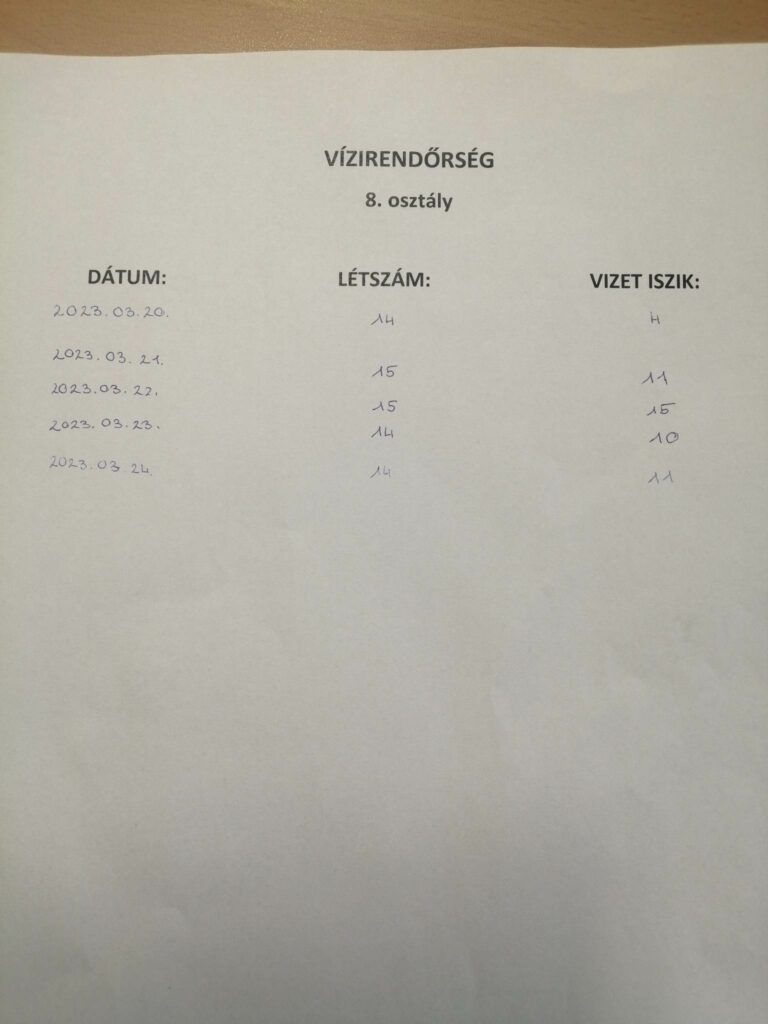 VÍZIRENDŐRSÉG
8. osztály
DÁTUM: LÉTSZÁM: VIZET ISZIK:
2023.03.20. 14 4
2023.03.21. 15 11
2023.03.22. 15 15
2023.03.23. 14 10
2023.03.24. 14 11